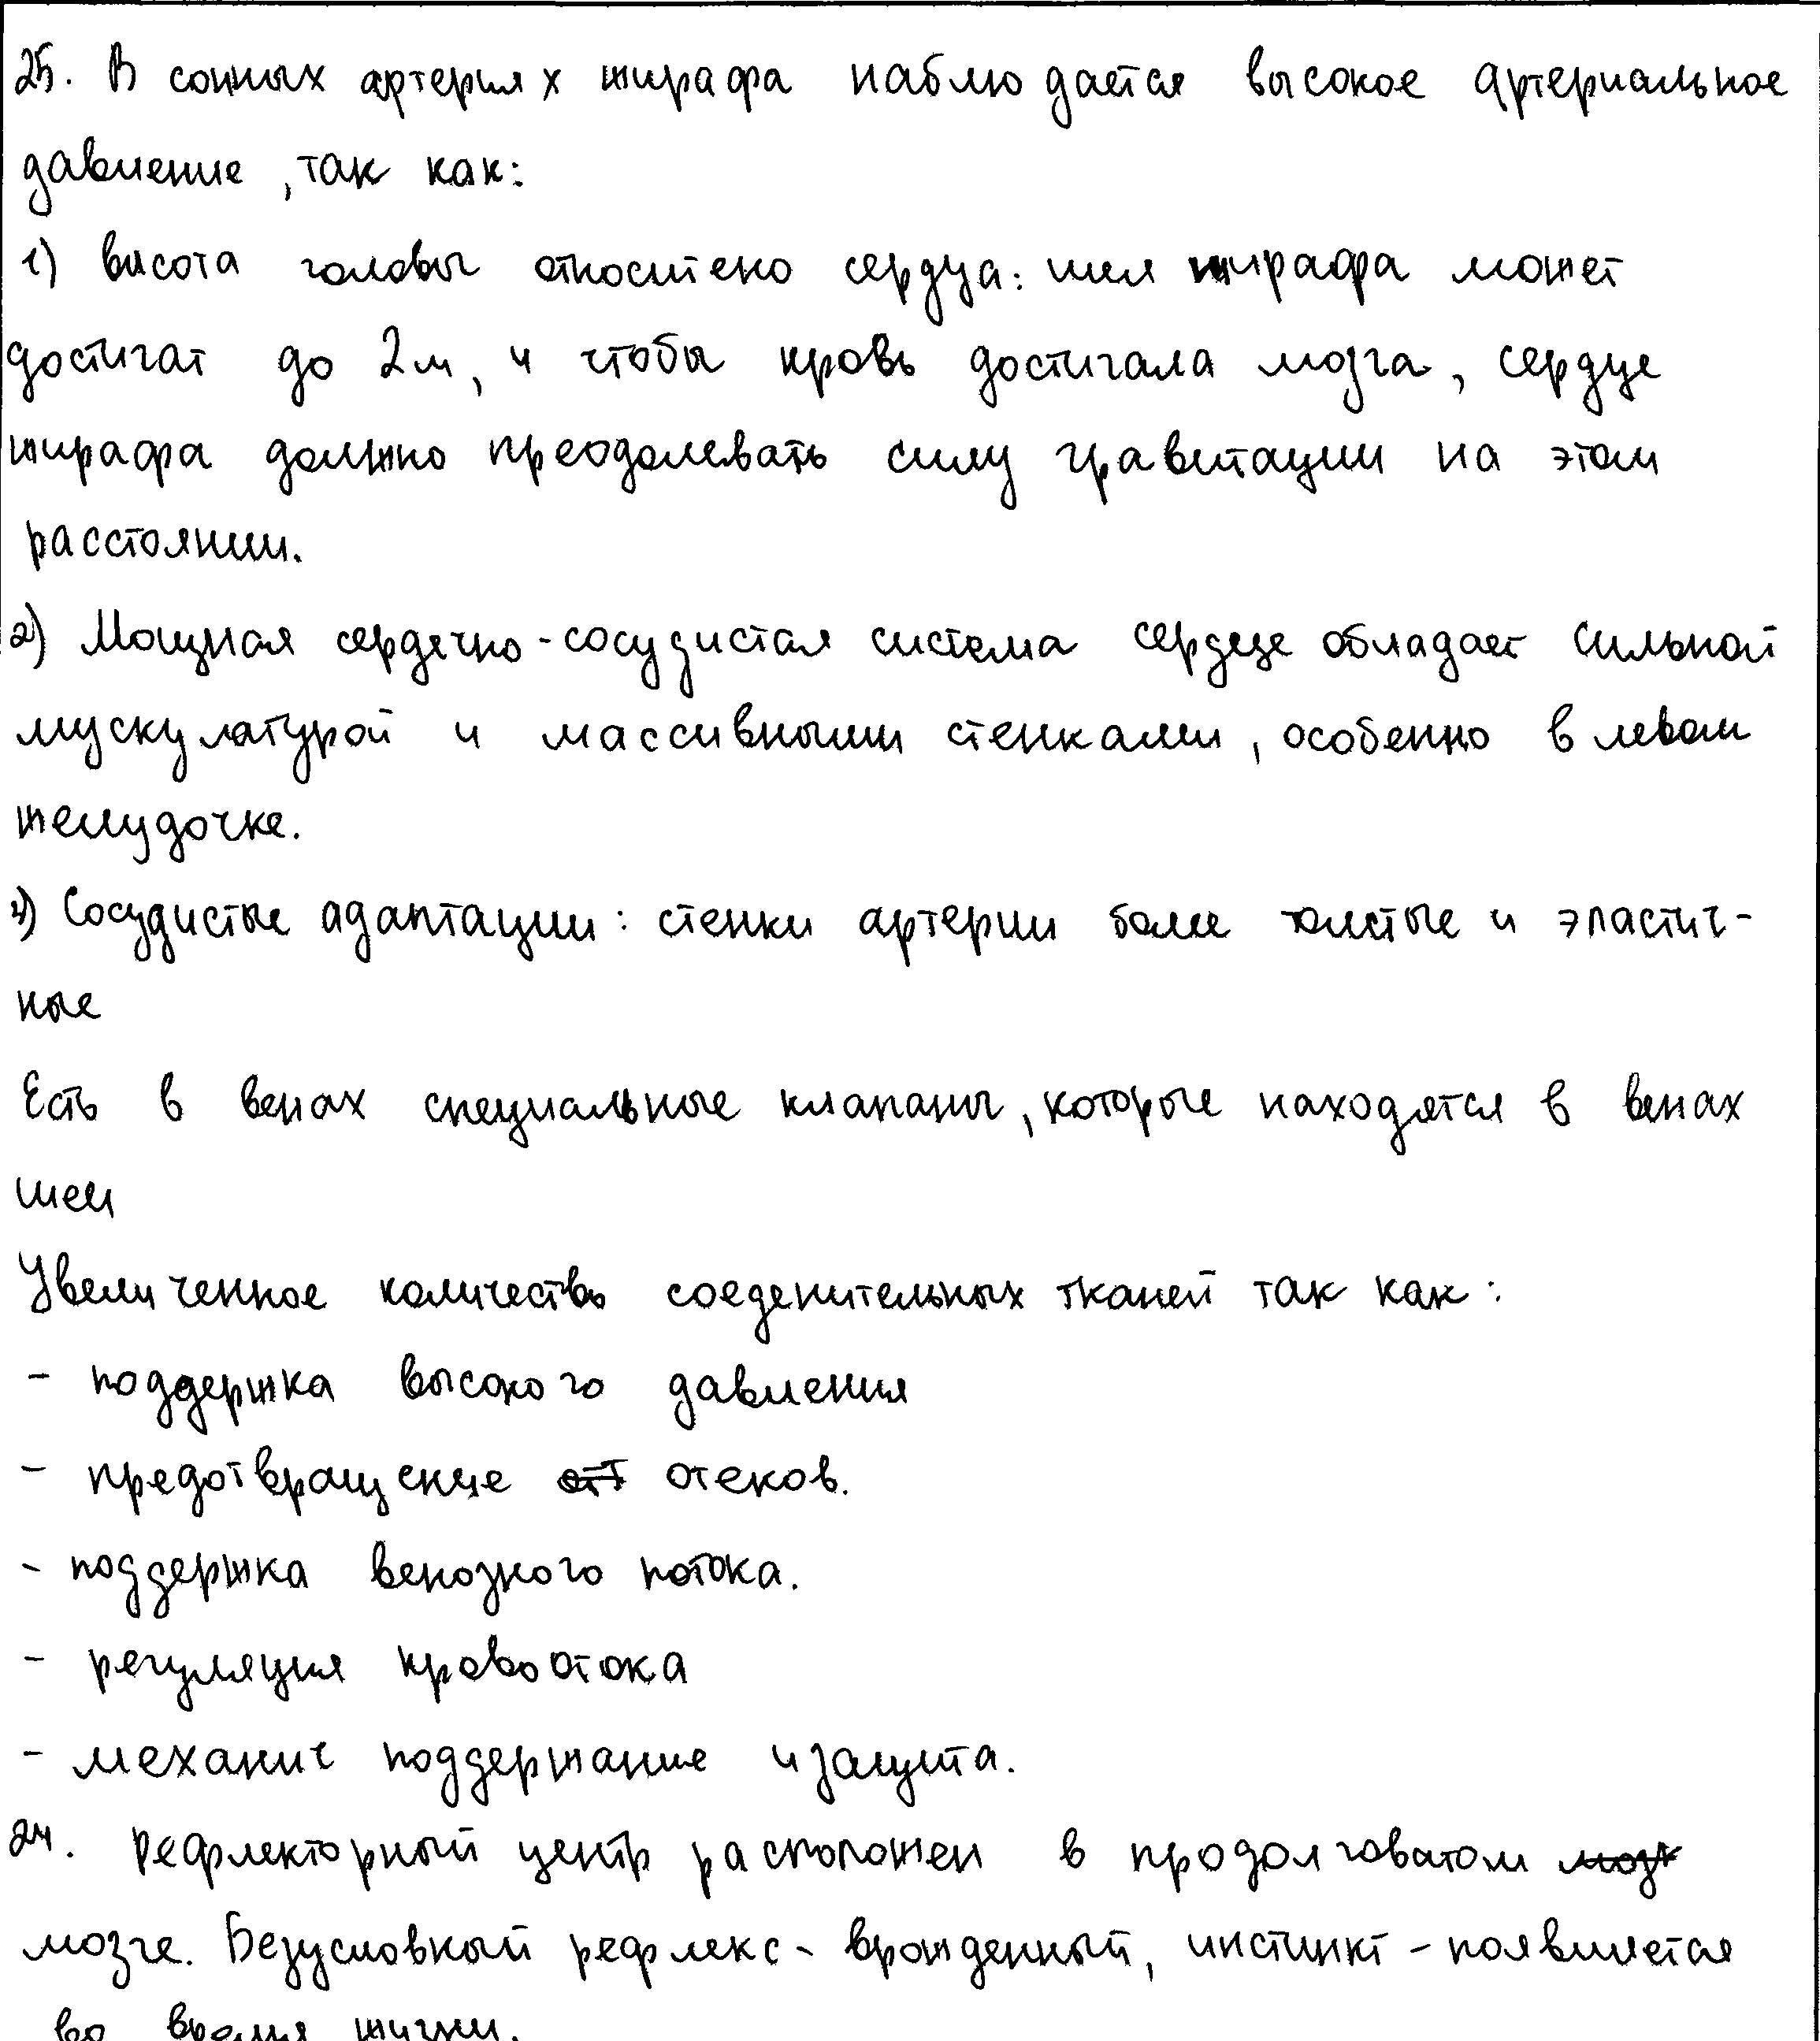 25. В сонных артериях жирафа наблюдается высокое артериальное
давление, так как:
1) высота головы относитено сердца: шея жирафа может
достигат до 2м, и чтобы кровь достигала мозга, сердце
жирафа должно преодолевать силу гравитации на этом
расстоянии.
2) Мощная сердечно-сосудистая система сердце обладает сильной
мускулатурой и массивными стенками, особенно в левом
желудочке.
Сосудистые адаптации: стенки артерии более толстые и эластич-
ные
Есть в венах специальные клапаны, которые находятся в венах
шеи
Увеличенное количество соеденительных тканей так как:
- поддержка высокого давления
- предотвращение отеков.
- поддержка венозного потока.
- регуляция кровоотока
- механич поддержание и защита.
24. Рефлекторный центр расположен в продолговатом
мозге. Безусловный рефлекс - врожденный, инстинкт - появляется
во время жизни.